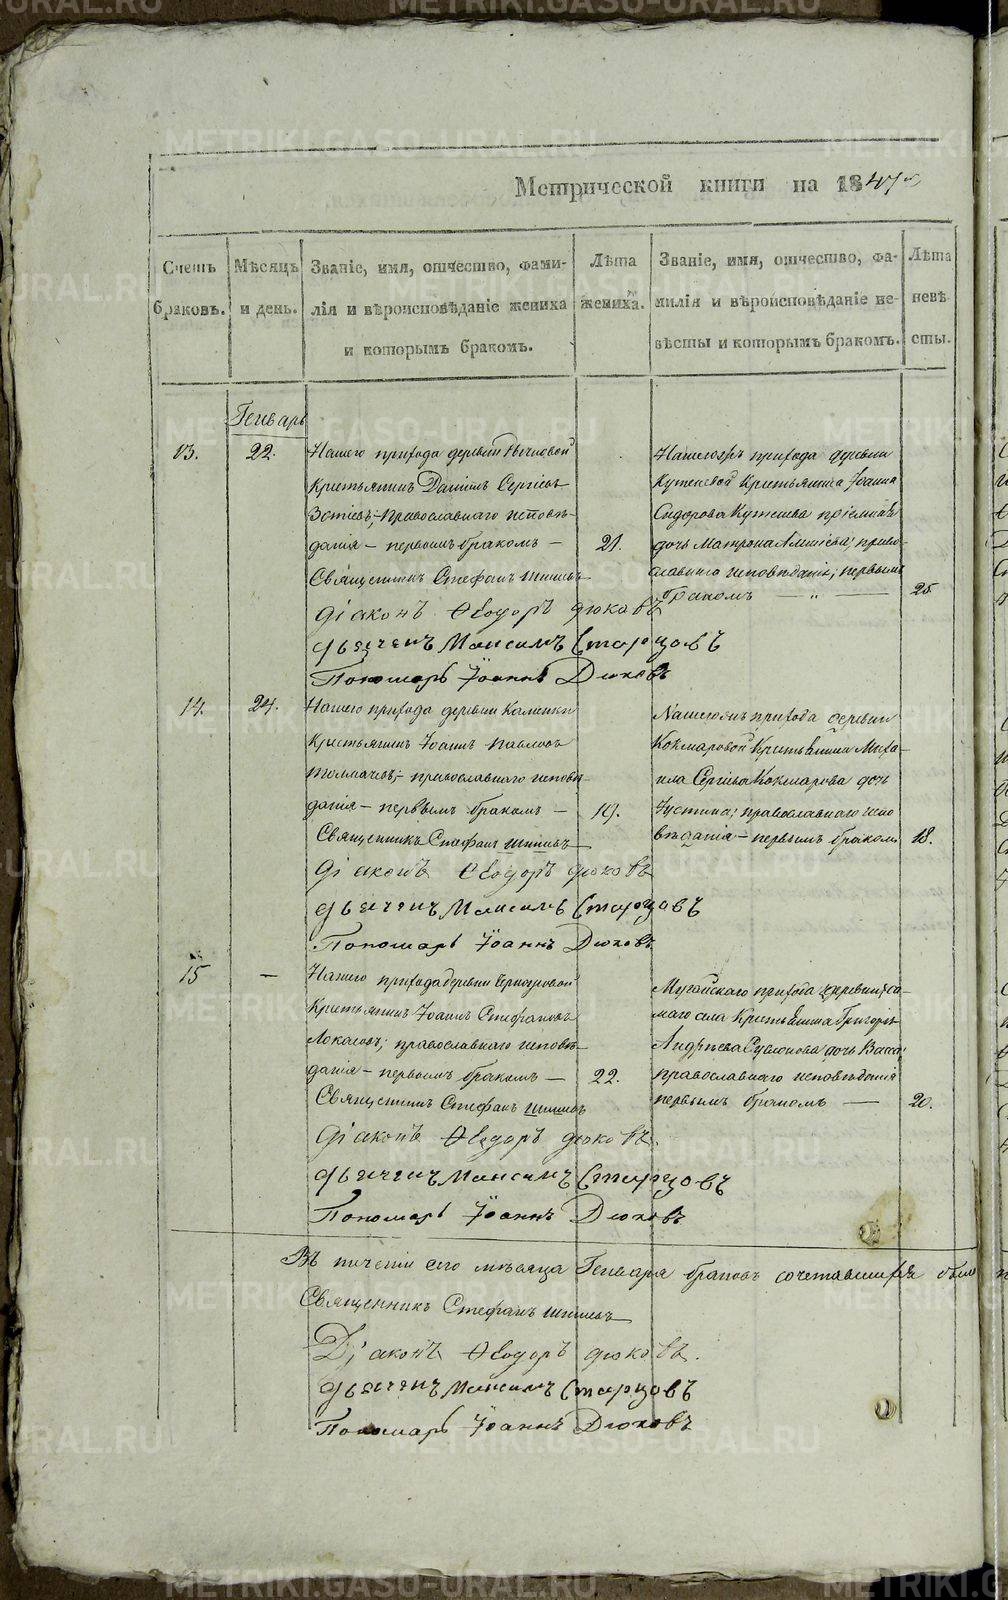 Метрической книги на 1847 г.
Счетъ браковъ.
Мѣсяцъ и день.
Званіе, имя, отчество, фами-
лія и вѣроисповѣданіе жениха
и которымъ бракомъ.
Лѣта
жениха.
Званіе, имя, отчество, фа-
милія и вѣроисповѣданіе не-
вѣсты и которымъ бракомъ.
Лѣта
невѣ-
сты.
Генварь
13.
22.
Нашего прихода деревни
Крестьянинъ Даніилъ Сергіевъ
Православнаго исповѣ-
данія – первымъ бракомъ –
21.
Священникъ Стефанъ
Діаконъ Ѳеодоръ Дюковъ
Дьячекъ Максимъ Старцовъ
Пономарь Іоаннъ Дюковъ
прихода деревни
Крестьянина Іоанна
Сидорова
дочь Матрона; право-
славнаго исповѣданія; первымъ
бракомъ — „ —
25.
14.
24.
Нашего прихода деревни
Крестьянинъ Іоаннъ Павловъ
Толмачевъ, – православнаго исповѣ-
данія – первымъ бракомъ –
19.
Священникъ Стефанъ
Діаконъ Ѳеодоръ Дюковъ
Дьячекъ Максимъ Старцовъ
Пономарь Іоаннъ Дюковъ
прихода деревни
Кокшаровой Крестьянина Миха-
ила Сергіева Кокшарова дочь
Устина; православнаго испо-
вѣданія – первымъ бракомъ
18.
15
—
Нашего прихода деревни
Крестьянинъ Іоаннъ Стефановъ
православнаго исповѣ-
данія – первымъ бракомъ –
22.
Священникъ Стефанъ
Діаконъ Ѳеодоръ Дюковъ.
Дьячекъ Максимъ Старцовъ
Пономарь Іоаннъ Дюковъ
Мугайскаго прихода
маго села Крестьянина Григорія
Андреева дочь Васса;
православнаго исповѣданія
первымъ бракомъ —
20.
Въ теченіи сего мѣсяца Генваря браковъ сочетавшихся было
Священникъ Стефанъ
Діаконъ Ѳеодоръ Дюковъ.
Дьячекъ Максимъ Старцовъ
Пономарь Іоаннъ Дюковъ
METRIKI.GASO-URAL.RU